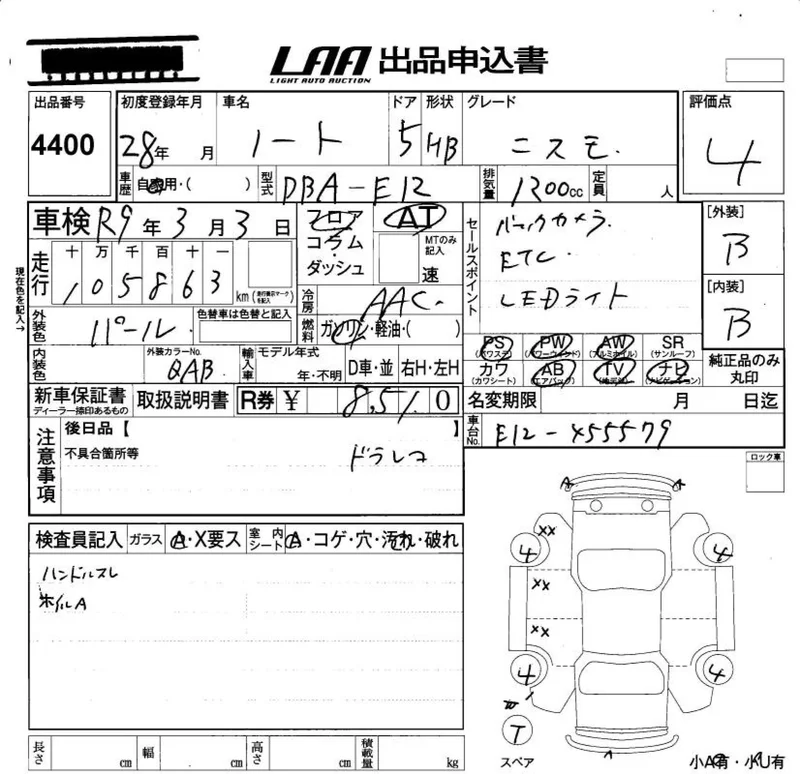 LAA 出品申込書
LIGHT AUTO AUCTION
出品番号 初度登録年月 車名 ドア 形状 グレード 評価点
4400 28年 月 ノート 5 HB ニスモ. 4
車歴 自家用・( ) 型式 DBA-E12 排気量 1200cc 定員 人
車検 R9年 3月 3日 フロア AT セールスポイント バックカメラ [外装]
コラム・ダッシュ MTのみ記入 速 ETC B
走行 十 万 千 百 十 一
1 0 5 8 6 3 km (走行提示マークを記入) 冷房 AAC LEDライト [内装]
現在色を記入→
外装色 パール 色替車は色替と記入 燃料 ガソリン・軽油・( ) B
PS (パワステ) PW (パワーウインド) AW (アルミホイル) SR (サンルーフ) 純正品のみ丸印
内装色 外装カラーNo. QAB 輸入車 モデル年式 年・不明 D車・並 右H・左H
カワ (カワシート) AB (エアバック) TV ナビ (ナビゲーション)
新車保証書 取扱説明書 R券 ¥ 8,510 名変期限 月 日迄
ディーラー捺印あるもの
車台No. E12-455579
注意事項 後日品【 】 ロック車
不具合箇所等 ドラレコ
検査員記入 ガラス A・X要ス 室内シート A・コゲ・穴・汚れ・破れ
ハンドルスレ
ホイルA
A A
XX
4 4
XX
XX
4 4
T
スペア
A
長さ cm 幅 cm 高さ cm 積載量 kg 小A有・小U有